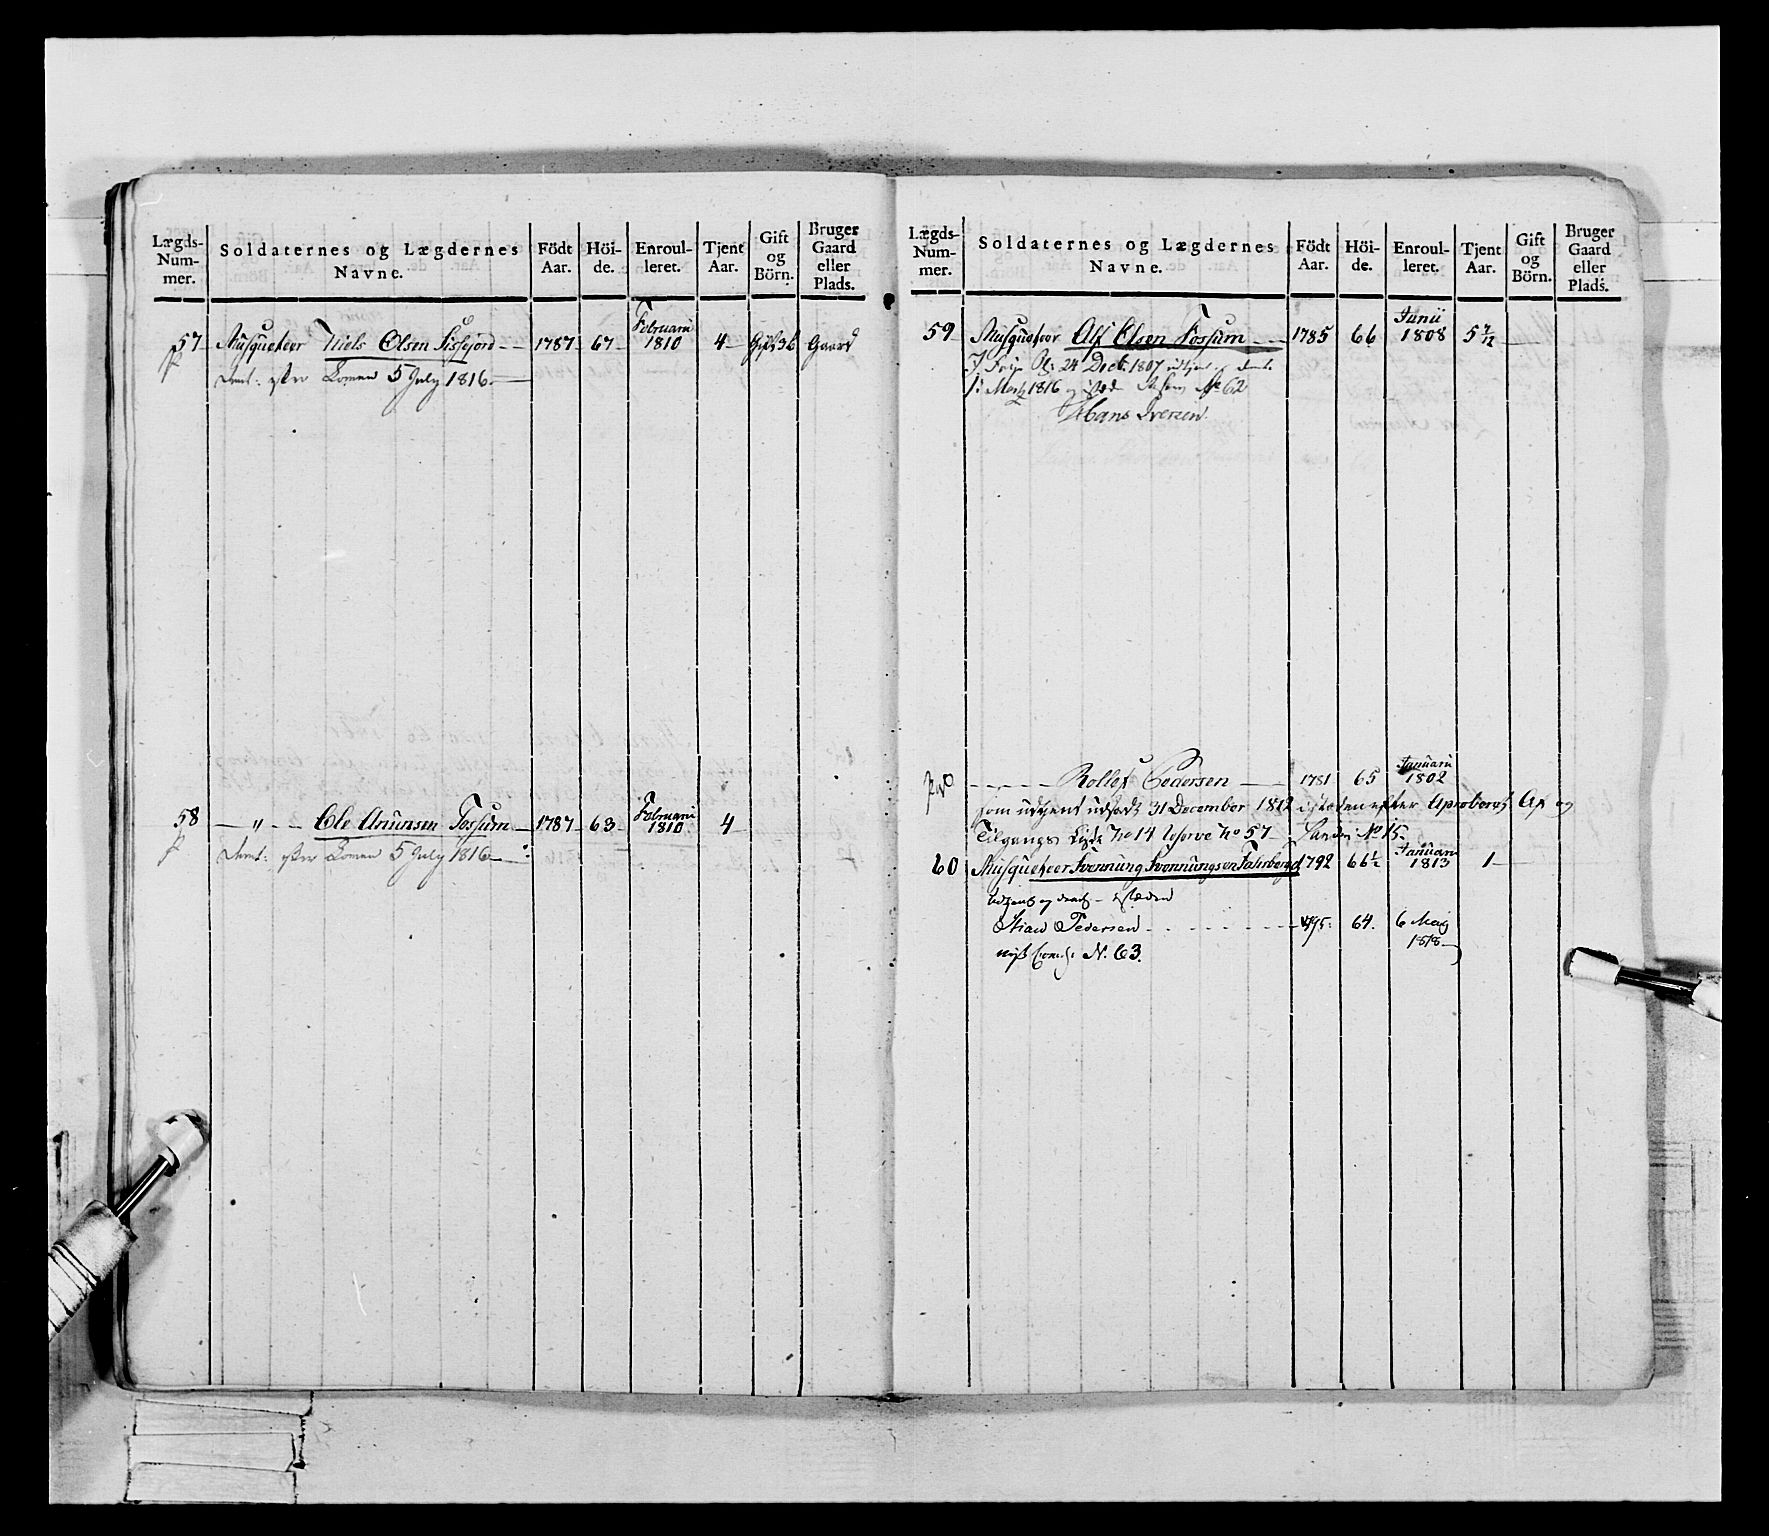 Lægds-Num-mer. Soldaternes og Lægdernes Navne. Födt Aar. Höi-de. Enroul-leret. Tjent Aar. Gift og Börn. Bruger Gaard eller Plads.
57 Musqueteer Niels Olsen Sissejord 1787 67 Februari 1810 4 Gift 3 b Gaard
Dimt: efter Lomen 5 July 1816.
58 — " — Ole Anunsen Fossum 1787 63 Februari 1810 4
Dimt: efter Lomen 5 July 1816
Lægds-Num-mer. Soldaternes og Lægdernes Navne. Födt Aar. Höi-de. Enroul-leret. Tjent Aar. Gift og Börn. Bruger Gaard eller Plads.
59 Musqueteer Alf Olsen Fossum 1785 66 Junii 1808 5 7/12
24 Dect: 1807 dimt.
1: Mart 1816 No 62
Hans Iversen.
Rollef Pedersen 1781 65 Januari 1802
som udtjent udsatt 31 December 1812 isteden efter Aproberet Af og
Tilgangs Liste No 14 Reserve No 57 No 15.
60 Musqueteer Svennung Svennungsen 1792 66 1/2 Januari 1813 1
og isteden
Pedersen 1795. 64. 6 May 1818
N. 63.